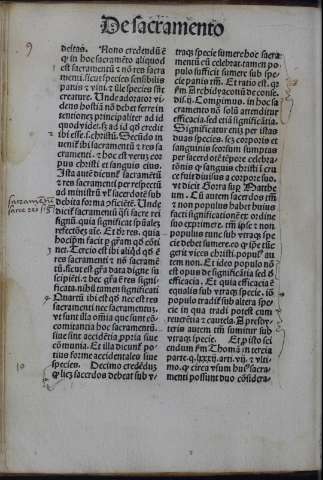 De sacramento
9
deltas. Nono credendū ē
q̄ in hoc sacramēto aliquod
est sacramentū ⁊ nō res sacra
menti. sicut species sensibilis
panis ⁊ vini ⁊ ille species sūt
creature. Unde adorator vi
dens hostiā nō debet ferre in
tentionez principaliter ad id
quod videt. sꝫ ad id qd̄ credit
ibi esse. s. christū. Secūdo in
uenit̄ ibi sacramentū ⁊ res sa
cramenti. ⁊ hoc est verus cor
pus christi et sanguis eius.
Ista autē dicunt̄ sacramētū
⁊ res sacramenti per respectū
ad ministrū vl̓ sacerdotē sub
debita forma
dicit̄ sacramentū q̄si sacre rei
signū. quia significat spūalez
refectōez aīe. Et dr̄ res. quia
hoc ip̄m facit p̄ grām qd̄ cōti
net. Tercio est ibi aliqd̄ qd̄ ē
res sacramenti ⁊ nō sacramē
tū. sicut est grā data digne su
scipiēti. ⁊ hec grā ē res signi
ficata. nihil tamen significat̄.
Quartū ibi est qd̄ nec est res
sacramenti nec sacramentuz.
vt sunt illa omīa que sunt cō
comitantia hoc sacramentū.
siue sint accidētia ꝓpria siue
cōmunia. Et illa dicunt̄ po-
tius forme accidentales siue
species. Decimo credēduꝫ
q̄ licꝫ sacerdos debeat sub v-
10
traqꝫ specie sumere hoc sacra
mentū cū celebrat. tamen po
pulo sufficit sumere sub spe
cie panis tm̄. Et ratio est. qꝛ
ꝑm Archidyaconū de conse.
di. ij. Compimus. in hoc sa
cramento nō solū attendit̄
efficacia. sed etiā significātia.
Significatur enīz per istas
duas species. sez corporis et
sanguinis seorsum sumptas
per sacerdotē tēpore celebra-
tōnis q̄ sanguis christi i cru
ce fuit diuisus a corpore suo.
vt dicit Gorra sup̱ Matthe
um. Cū autem sacerdos tm̄
⁊ non populus habet huius
facti significationē ex ordine
suo exprimere. tm̄ ip̄se ⁊ non
populus tunc sub vtraqꝫ spe
cie debet sumere. eo q̄ ip̄e tūc
gerit vices christi. popul̓ au
tem non. Et ideo populo nō
est opus de significātia sed d̄
efficacia. Et quia efficacia ē
equalis sub vtraqꝫ. iō
populo tradit̄ sub altera spe
cie in qua tradi potest cum
reuerētia ⁊ cautela. A presby-
terio autem tm̄ sumitur sub
vtraqꝫ specie. Et ꝓ isto sci
endum ꝑm Thomā in tercia
parte. q. lxxxij. arti. vij. ⁊ vlti-
mo. q̄ circa vsum hui̓ sacra
menti possunt duo cōsidera-